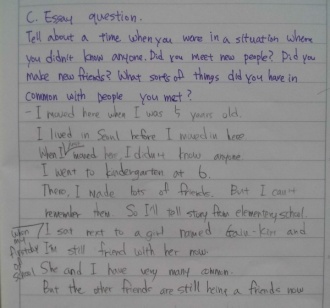 C. Essay question.
Tell about a time when you were in a situation where
you didn't know anyone. Did you meet new people? Did you
make new friends? What sorts of things did you have in
common with people you met?
- I moved here when I was 5 years old.
I lived in Seoul before I moved in here.
When I moved here I didn't know anyone.
I went to kindergarten at 6.
There, I made lots of friends. But I can't
remember them. So I'll tell story from elementary school.
I sat next to a girl named and
I'm still friend with her now.
She and I have very many common.
But the other friends are still being a friends now